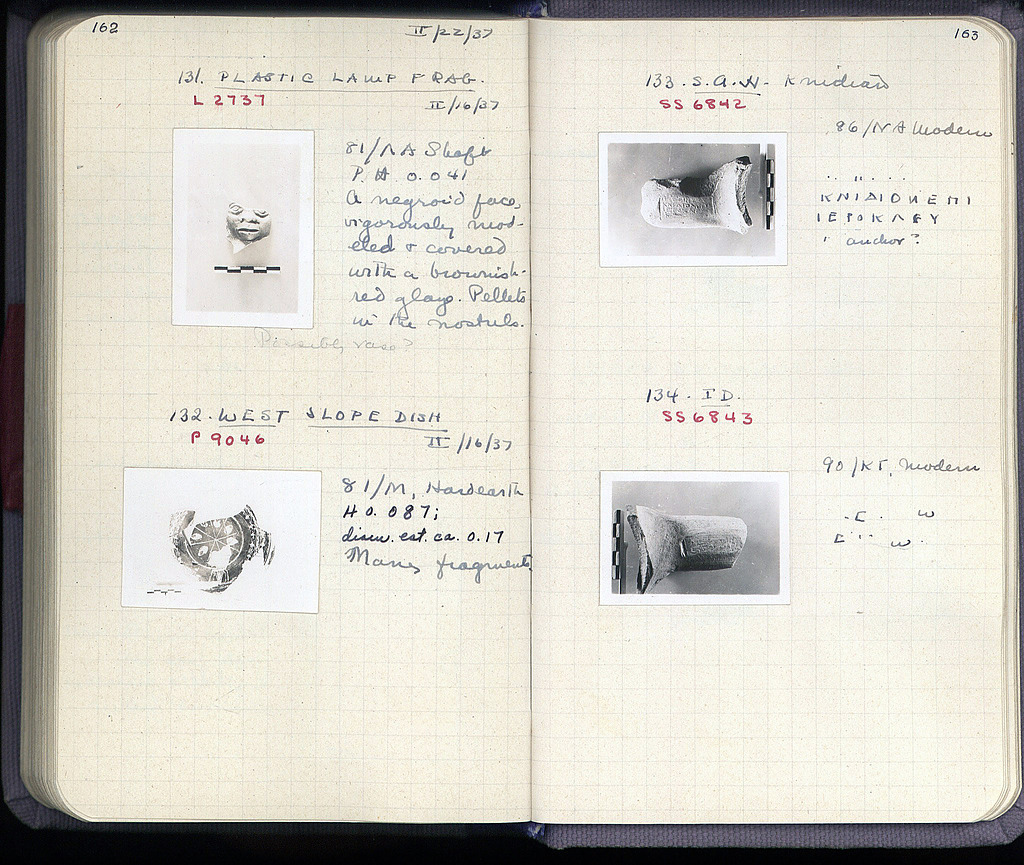 162
II/22/37
131. PLASTIC LAMP FRAG.
L 2737
II/16/37
81/ΛΑ Shaft
P.H. 0.041
A negroid face,
vigorously mod-
eled & covered
with a brownish-
red glaze. Pellets
in the nostrils.
Possibly vase?
132. WEST SLOPE DISH
P 9046
II/16/37
81/Μ, Hardearth
H 0.087;
diam. est. ca. 0.17
Many fragments.
163
133. S.A.H. Knidian
SS 6842
86/ΝΑ Modern
ΚΝΙΔΙΟΝΕΠΙ
ΙΕΡΟΚΛΕΥ
anchor?
134. ID.
SS 6843
90/ΚΓ, Modern